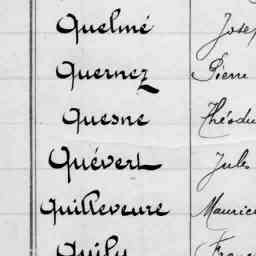 Quelmé Jose
Quernez Pierre
Quesne Théodu
Quévert Jules
Quilleveure Maurice
Quily Franc